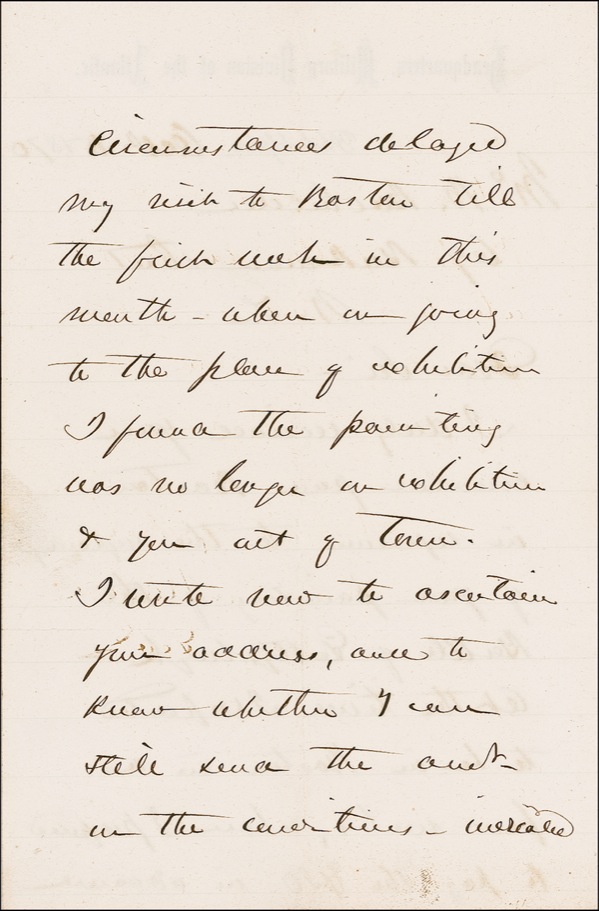 Circumstances delayed
my visit to Boston till
the first week in this
month - when on going
to the place of exhibition
I found the painting
was no longer on exhibition
& you out of Town.
I write now to ascertain
your address, and to
know whether I can
still send the
on the conditions - indicated